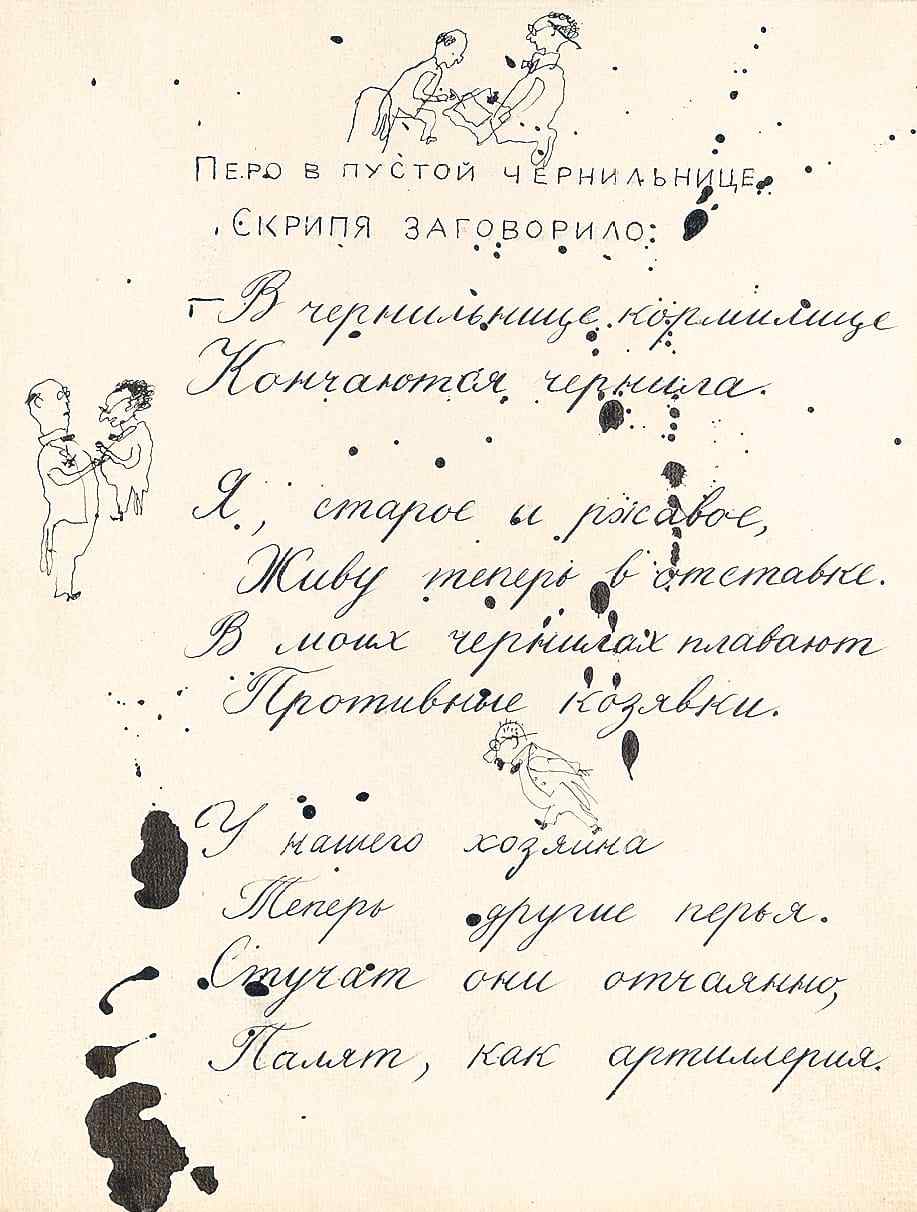 Перо в пустой чернильнице,
Скрипя заговорило:
— В чернильнице кормилице
Кончаются чернила.
Я, старое и ржавое,
Живу теперь в отставке.
В моих чернилах плавают
Противные козявки.
У нашего хозяина
Теперь другие перья.
Стучат они отчаянно,
Палят, как артиллерия.